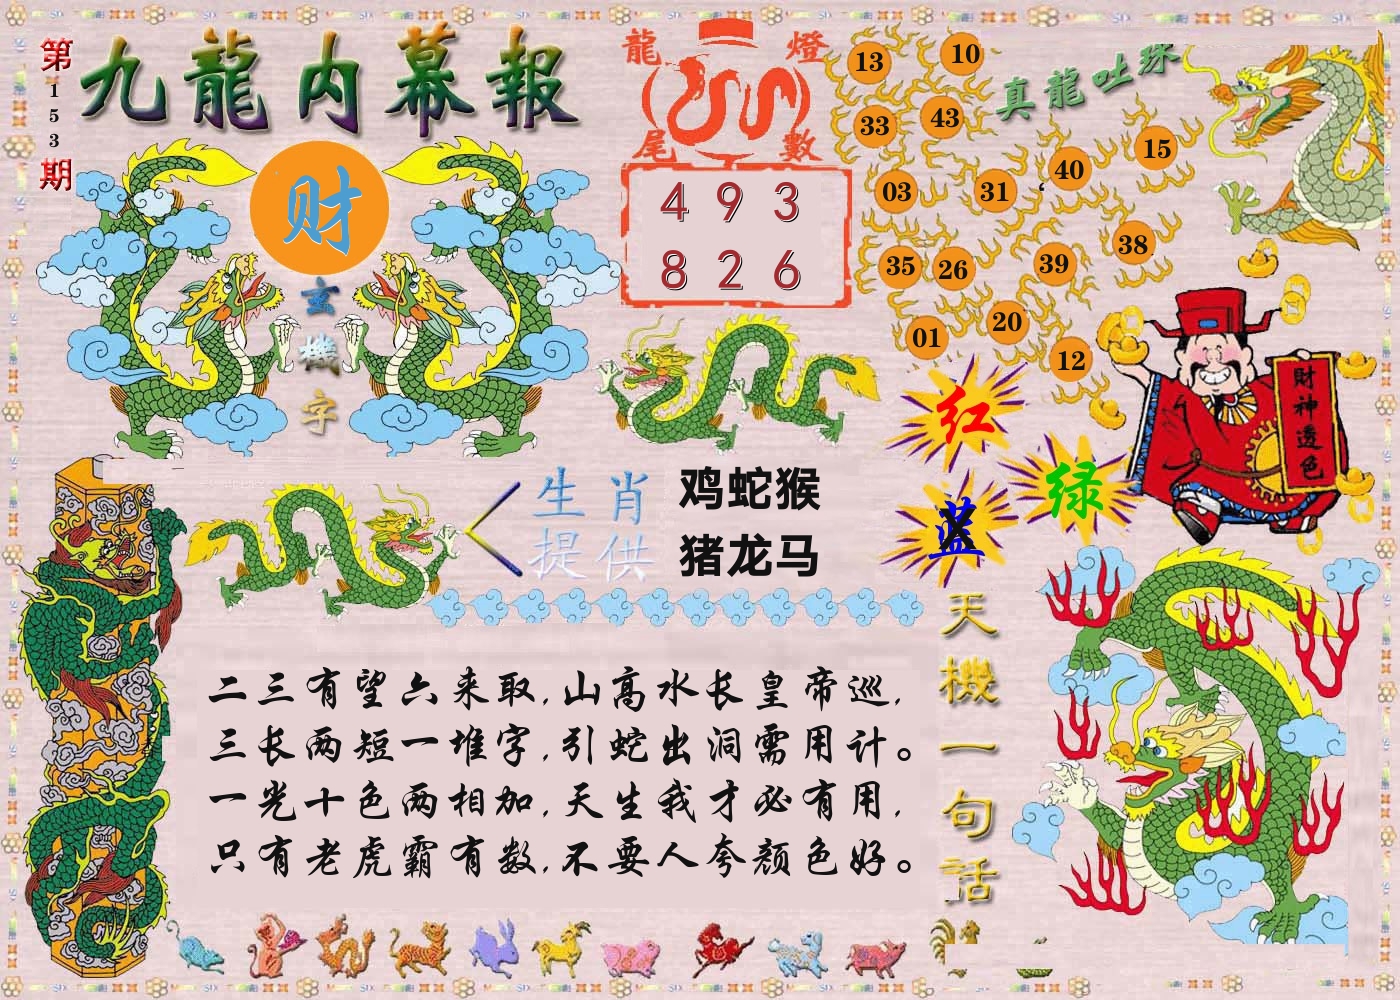 第153期
九龍内幕報
财
玄機字
龍燈
尾數
4 9 3
8 2 6
真龍吐珠
13 10
33 43
03 31 40 15
35 26 39 38
01 20 12
红
绿
蓝
財神透色
生肖
提供
鸡蛇猴
猪龙马
二三有望六来取,山高水长皇帝巡,
三长两短一堆字,引蛇出洞需用计。
一光十色两相加,天生我才必有用,
只有老虎霸有数,不要人夸颜色好。
天機一句話